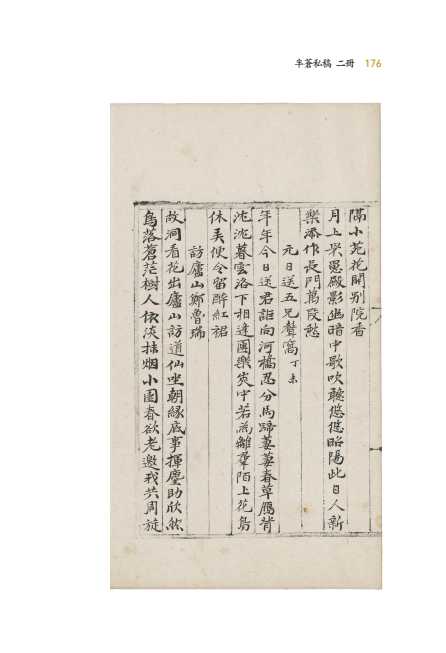 半蒼私稿 二冊 176
滿小苑花開別院香
月上罘罳殿影幽暗中歌吹聽悠悠昭陽此日人新
樂添作長門萬段愁
元日送五兄聱窩丁未
年年今日送君誰向河橋忍分馬蹄萋萋春草鴈背
沈沈暮雲洛下相逢團樂笑中若為離羣陌上花鳥
休美便令留醉紅裙
訪廬山鄭曾瑞
故洞看花出廬山訪道仙坐朝緣底事揮麈助欣然
鳥落蒼茫樹人依淡抹烟小園春欲老邀我共周旋